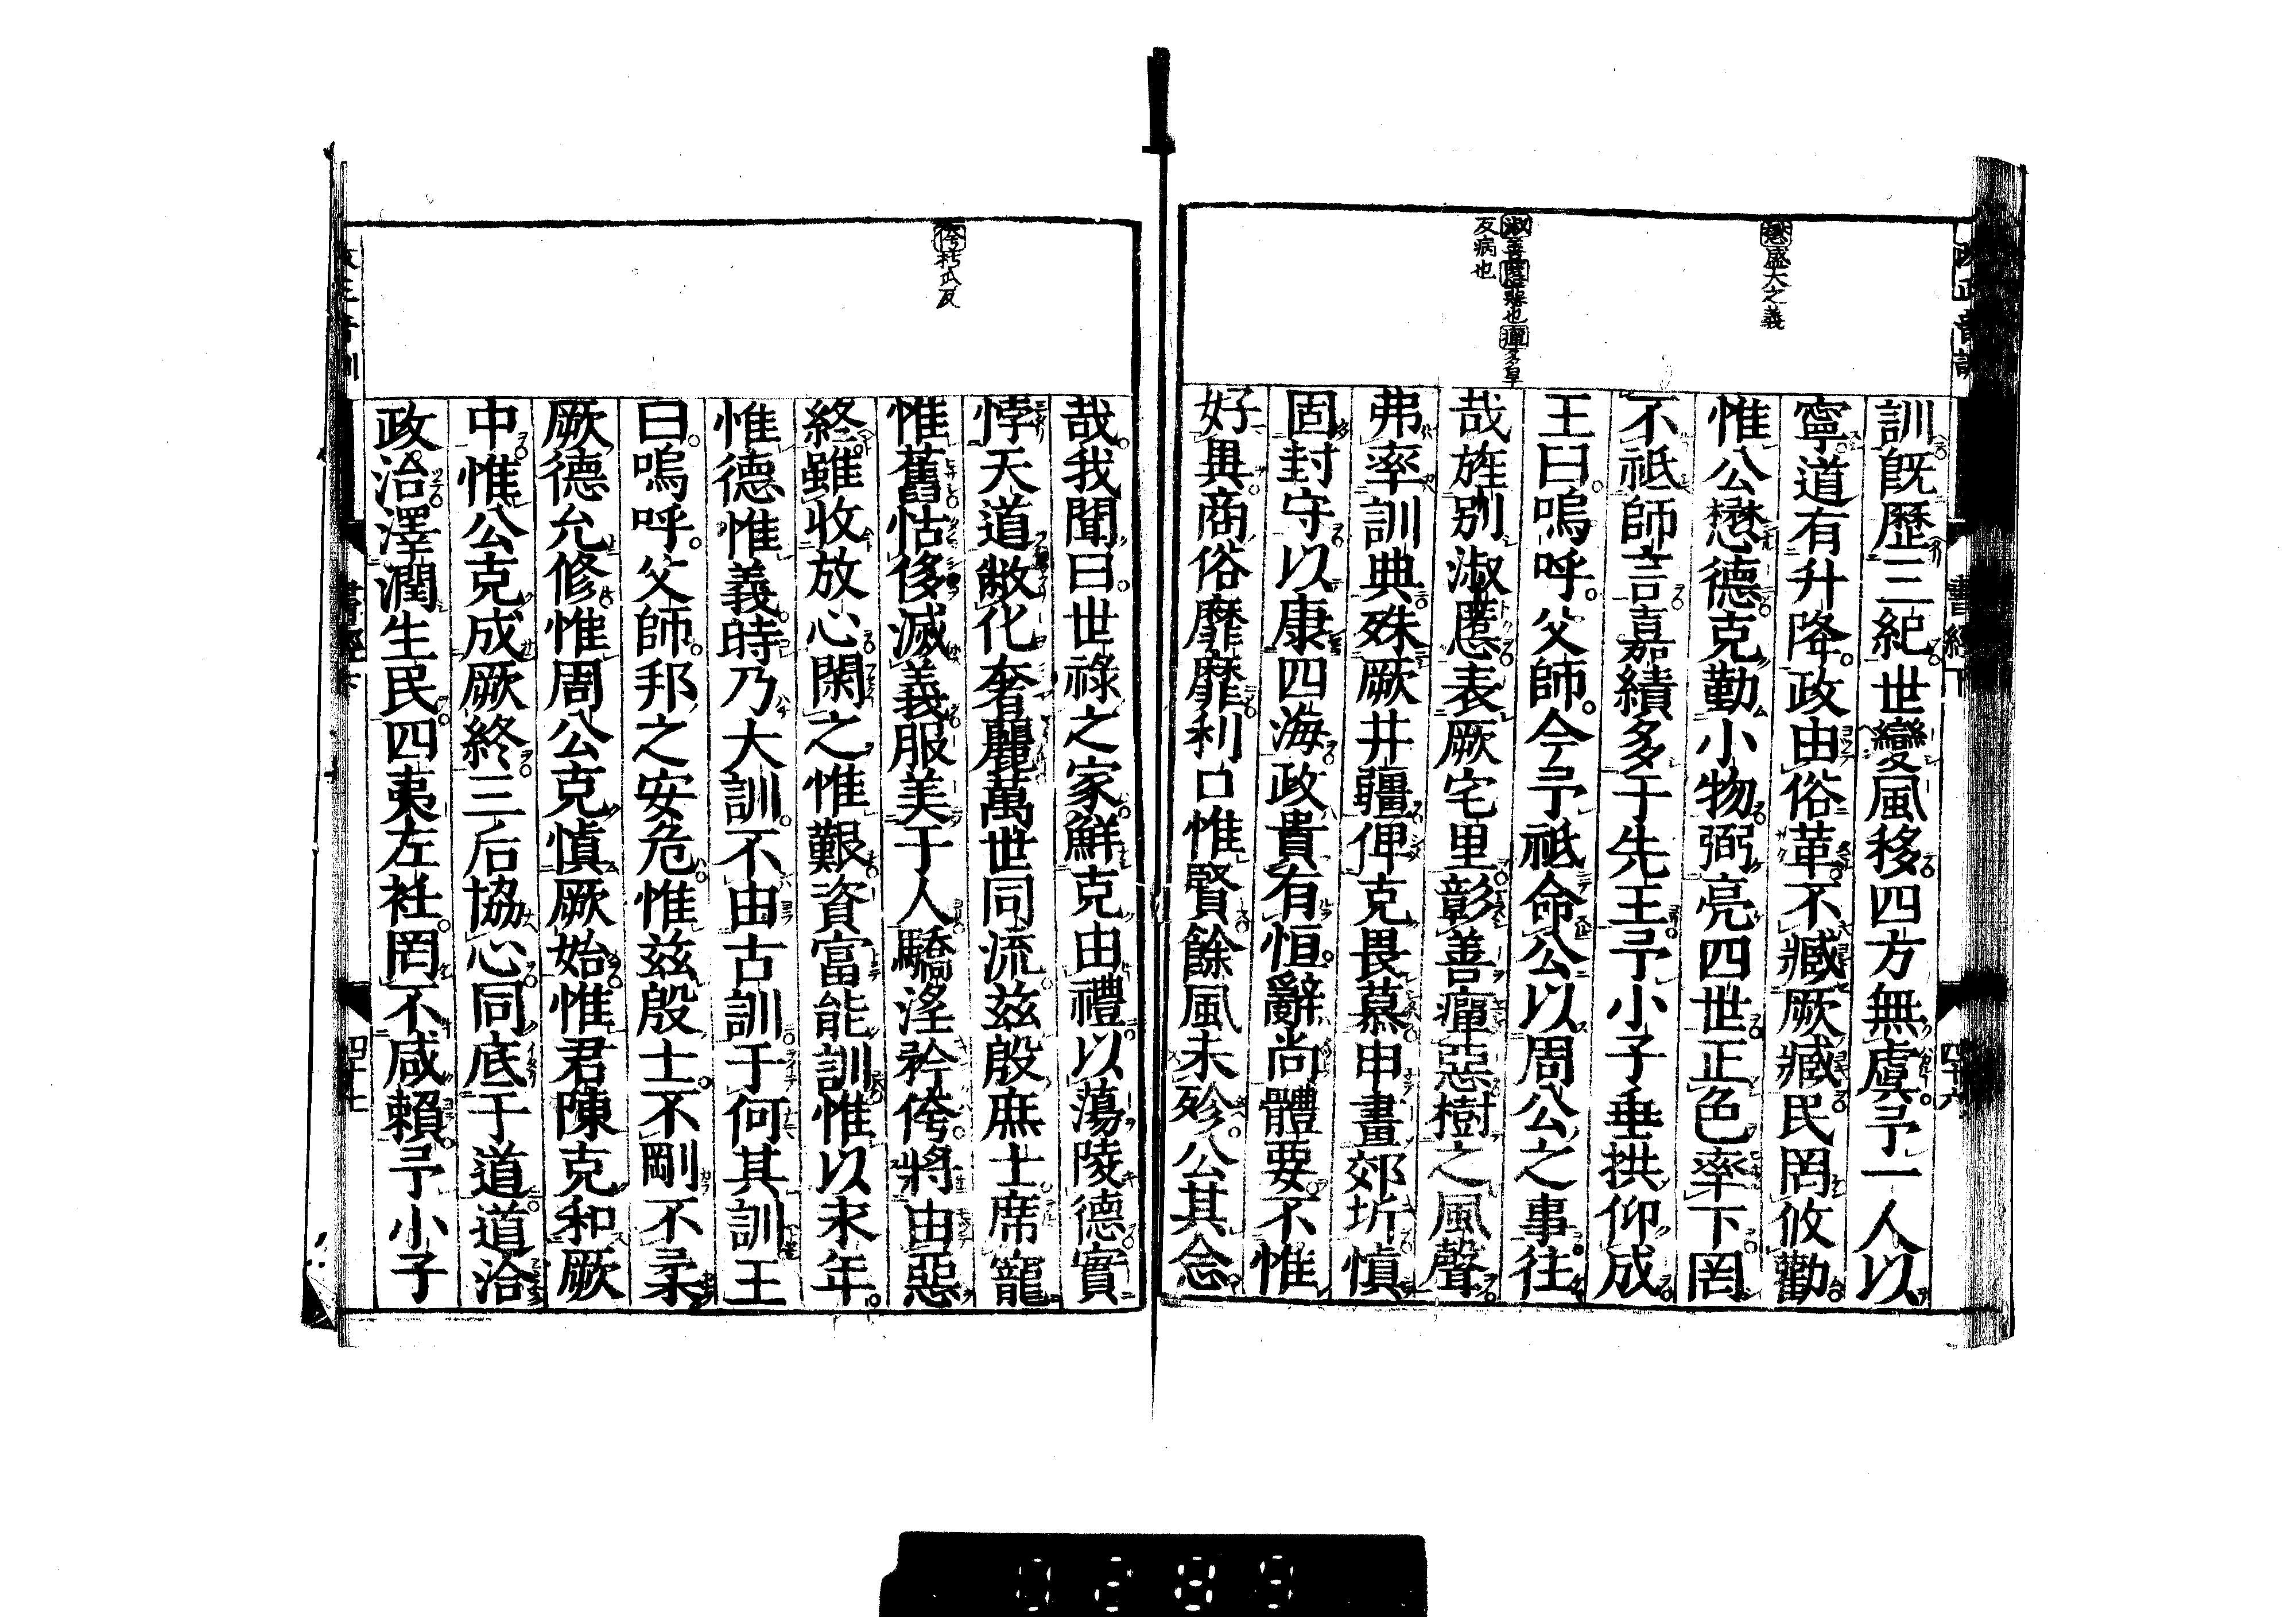 懋盛大之義
淑善慝惡也癉多旱
反病也
訓既歷三紀世變風移四方無虞予一人以
寧道有升降政由俗革不臧厥臧民罔攸勸
惟公懋德克勤小物弼亮四世正色率下罔
不祗師言嘉績多于先王予小子垂拱仰成
王曰嗚呼父師今予祗命公以周公之事往
哉旌別淑慝表厥宅里彰善癉惡樹之風聲
弗率訓典殊厥井疆俾克畏慕申畫郊圻愼
固封守以康四海政貴有恒辭尚體要不惟
好異商俗靡靡利口惟賢餘風未殄公其念
書經下
四十六
侉枯瓜反
哉我聞曰世祿之家鮮克由禮以蕩陵德實
悖天道敝化奢麗萬世同流茲殷庶士席寵
惟舊怙侈滅義服美于人驕淫矜侉將由惡
終雖收放心閑之惟艱資富能訓惟以永年
惟德惟義時乃大訓不由古訓于何其訓王
曰嗚呼父師邦之安危惟茲殷士不剛不柔
厥德允修惟周公克愼厥始惟君陳克和厥
中惟公克成厥終三后協心同底于道道洽
政治澤潤生民四夷左衽罔不咸賴予小子
四十七